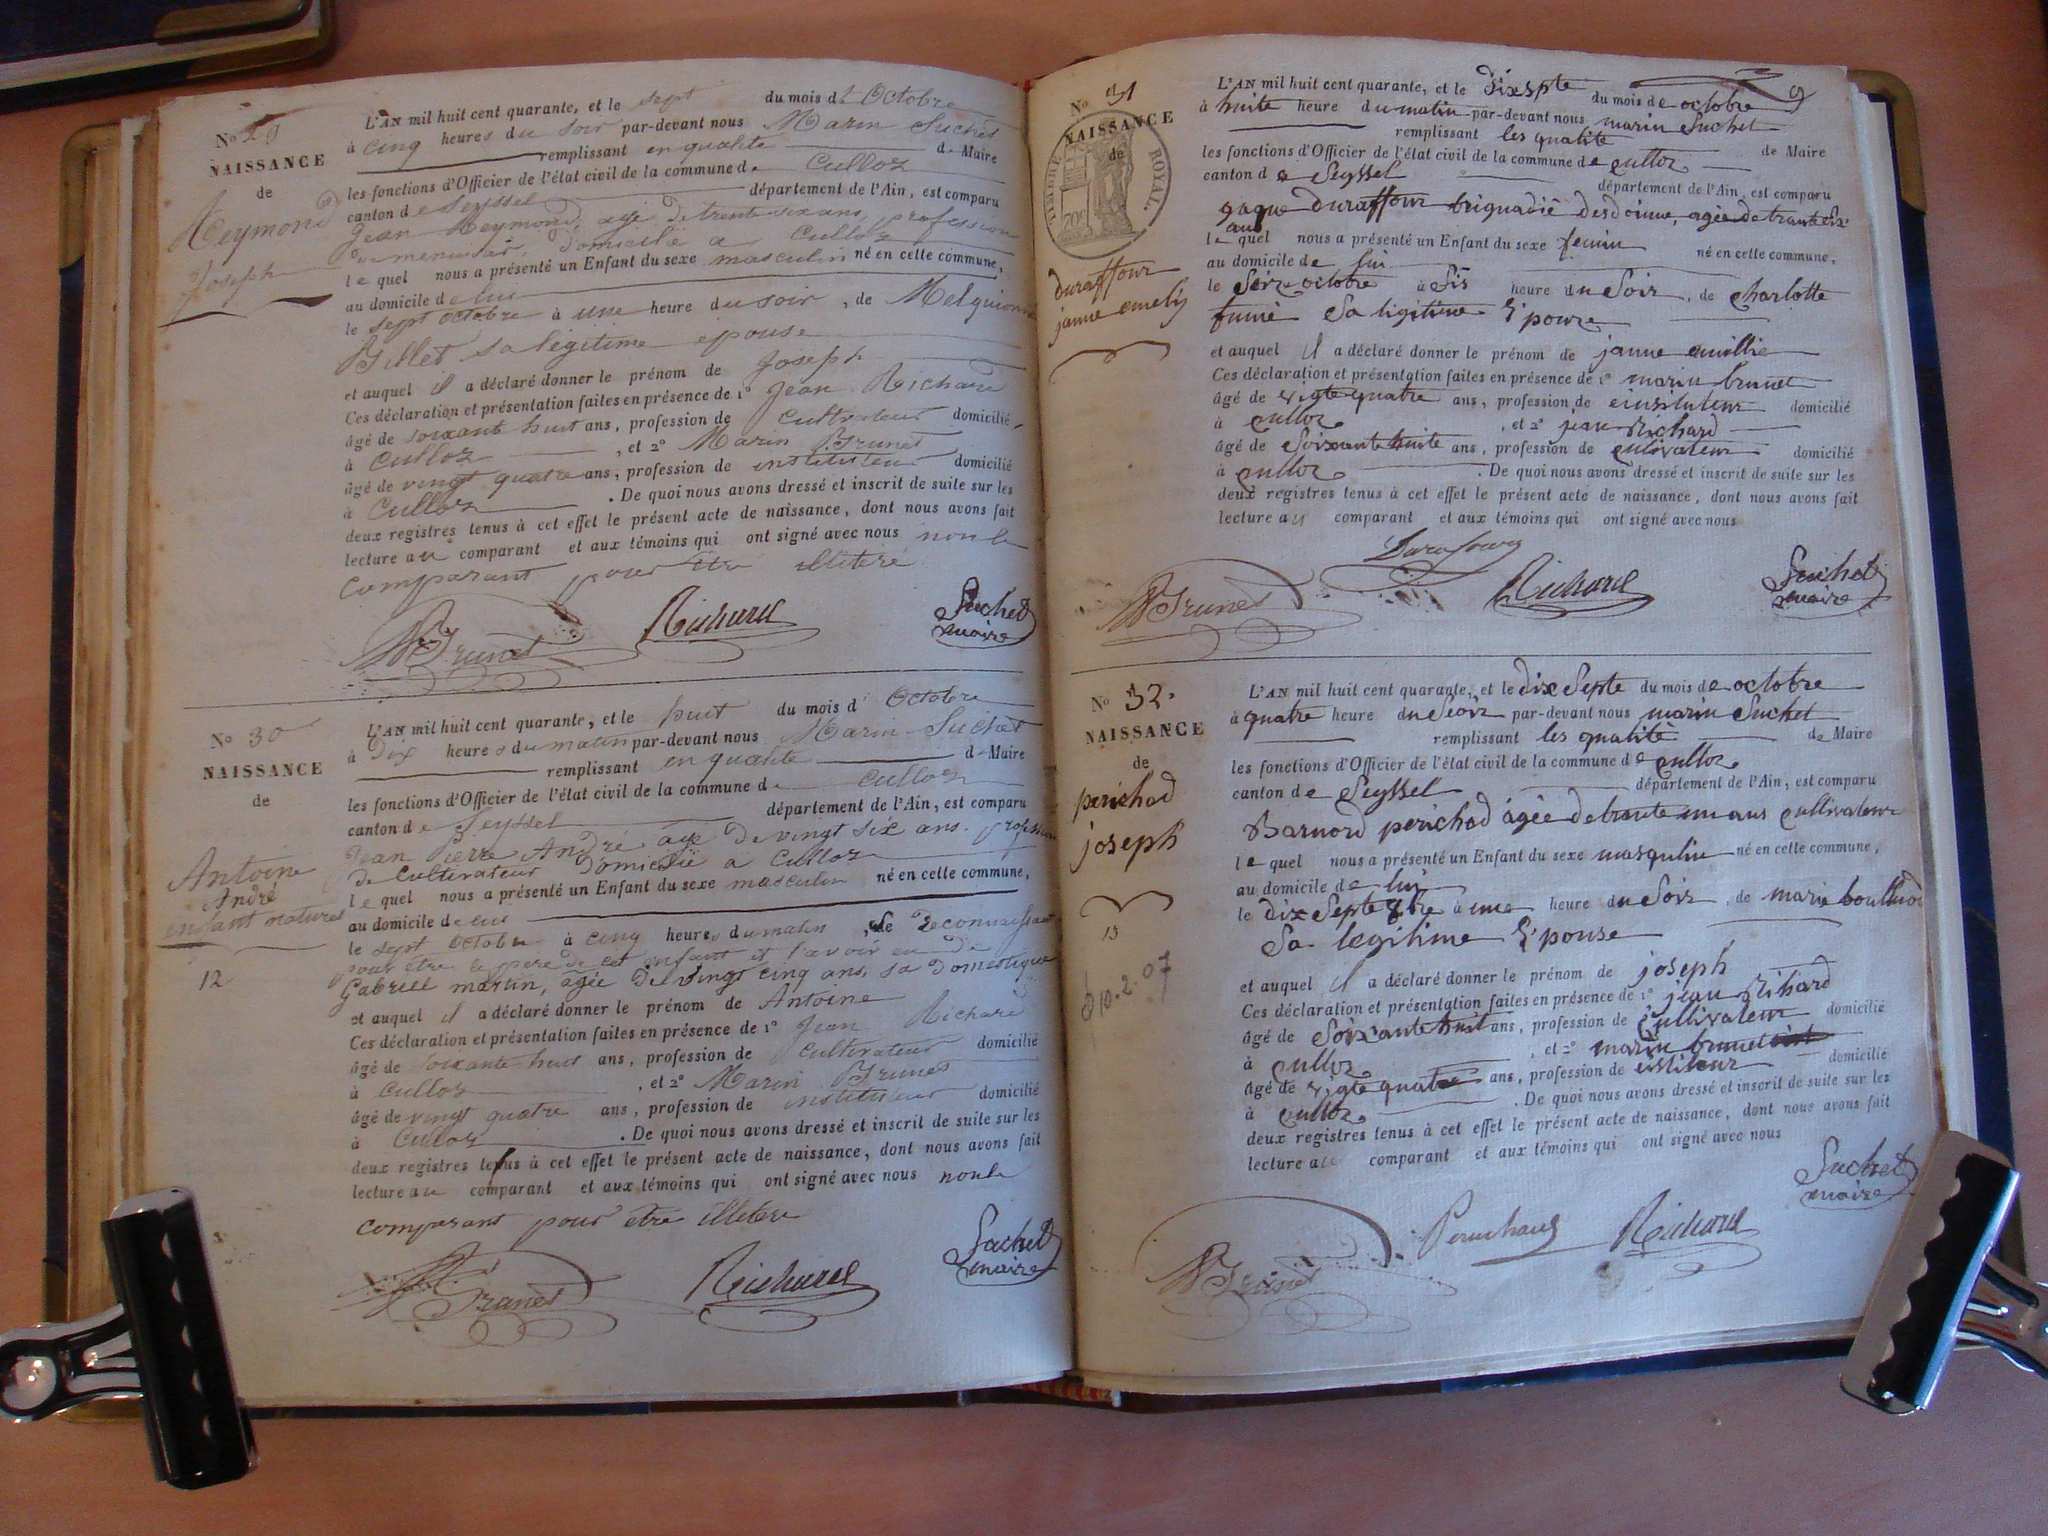 No 29
NAISSANCE
de
Reymond
Joseph
L'AN mil huit cent quarante, et le sept du mois d' Octobre
à cinq heures du soir par-devant nous Marin Suchet
remplissant en qualité de Maire
les fonctions d'Officier de l'état civil de la commune de Culloz
canton de Seyssel département de l'Ain, est comparu
Jean Reymond, agé de trente six ans, profession
de menuisier, domicilié a Culloz
le quel nous a présenté un Enfant du sexe masculin né en cette commune,
au domicile de lui
le sept octobre à une heure du soir, de
Billet sa légitime epouse
et auquel il a déclaré donner le prénom de Joseph
Ces déclaration et présentation faites en présence de 1º Jean Richard
âgé de soixante huit ans, profession de cultivateur domicilié
à Culloz, et 2º Marin Brunet
âgé de vingt quatre ans, profession de instituteur domicilié
à Culloz. De quoi nous avons dressé et inscrit de suite sur les
deux registres tenus à cet effet le présent acte de naissance, dont nous avons fait
lecture au comparant et aux témoins qui ont signé avec nous non le
comparant pour être illitéré
Brunet Richard Suchet
maire
No 30
NAISSANCE
de
Antoine
André
enfant naturel
12
L'AN mil huit cent quarante, et le huit du mois d' Octobre
à Dix heures du matin par-devant nous Marin Suchet
remplissant en qualité de Maire
les fonctions d'Officier de l'état civil de la commune de Culloz
canton de Seyssel département de l'Ain, est comparu
Jean Pierre André agé de vingt six ans. profession
de Cultivateur domicilié a Culloz
le quel nous a présenté un Enfant du sexe masculin né en cette commune,
au domicile de lui
le sept Octobre à cinq heures du matin, de Reconnaissant
pour être le père de cet enfant et l'avoir eu de
Gabriell martin, âgée de vingt cinq ans, sa domestique
et auquel il a déclaré donner le prénom de Antoine
Ces déclaration et présentation faites en présence de 1º Jean Richard
âgé de soixante huit ans, profession de cultivateur domicilié
à Culloz, et 2º Marin Brunet
âgé de vingt quatre ans, profession de instituteur domicilié
à Culloz. De quoi nous avons dressé et inscrit de suite sur les
deux registres tenus à cet effet le présent acte de naissance, dont nous avons fait
lecture au comparant et aux témoins qui ont signé avec nous non le
comparant pour etre illitéré
Brunet Richard Suchet
maire
9
No 31
NAISSANCE
de
TIMBRE ROYAL
duraffour
janne emely
L'AN mil huit cent quarante, et le dixspte du mois de octobre
à huite heure du matin par-devant nous marin Suchet
remplissant les qualité de Maire
les fonctions d'Officier de l'état civil de la commune de culloz
canton de Seyssel département de l'Ain, est comparu
duraffour agée de trante six
ans
le quel nous a présenté un Enfant du sexe femin né en cette commune,
au domicile de lui
le Seize octobre à Sis heure du Soir, de charlotte
fumé Sa ligitime Epouze
et auquel il a déclaré donner le prénom de janne emillie
Ces déclaration et présentation faites en présence de 1º marin brunet
âgé de vigte quatre ans, profession de einsituteur domicilié
à culloz, et 2º jean Richard
âgé de Soixante huite ans, profession de cultivateur domicilié
à culloz. De quoi nous avons dressé et inscrit de suite sur les
deux registres tenus à cet effet le présent acte de naissance, dont nous avons fait
lecture au comparant et aux témoins qui ont signé avec nous
Brunet Richard Suchet
maire
No 32.
NAISSANCE
de
perichod
joseph
13
10.2.07
L'AN mil huit cent quarante, et le dix Septe du mois de octobre
à quatre heure du Seoir par-devant nous marin Suchet
remplissant les qualité de Maire
les fonctions d'Officier de l'état civil de la commune de culloz
canton de Seyssel département de l'Ain, est comparu
Barnord perichod agée de trante un ans cultivateur
le quel nous a présenté un Enfant du sexe masqulin né en cette commune,
au domicile de lui
le dix Septe 8bre à une heure du Soir, de marie
Sa legitime Epouse
et auquel il a déclaré donner le prénom de joseph
Ces déclaration et présentation faites en présence de 1º jean Rihard
âgé de Soixante huit ans, profession de cultivateur domicilié
à culloz, et 2º marin brunet
âgé de vigte quatre ans, profession de domicilié
à culloz. De quoi nous avons dressé et inscrit de suite sur les
deux registres tenus à cet effet le présent acte de naissance, dont nous avons fait
lecture au comparant et aux témoins qui ont signé avec nous
Brunet Richard Suchet
maire